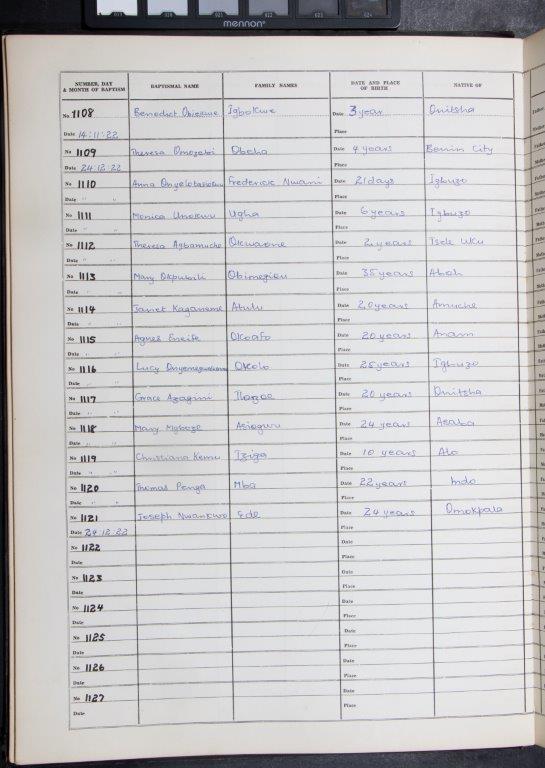 019 020 021 022 023 024
mennon
NUMBER, DAY & MONTH OF BAPTISM BAPTISMAL NAME FAMILY NAMES DATE AND PLACE OF BIRTH NATIVE OF
No 1108 Benedict Igbokwe Date 3 year Onitsha
Date 14:11:22 Place
No 1109 Theresa Omozebi Obeha Date 4 years Benin City
Date 24:12:22 Place
No 1110 Anna Frederick Nwani Date 21days Igbuzo
Date " " Place
No 1111 Monica Unokwu Ugha Date 6 years Igbuzo
Date " " Place
No 1112 Theresa Agbamuche Okwuone Date 2 years Isele Uku
Date " " Place
No 1113 Mary Okpubili Obimegieu Date 35 years Aboh
Date " " Place
No 1114 Janet Kaganeme Atulu Date 20years Amuche
Date " " Place
No 1115 Agnes Eneife Okoafo Date 20 years Anam
Date " " Place
No 1116 Lucy Okolo Date 25 years Igbuzo
Date " " Place
No 1117 Grace Azagini Ilozoe Date 20 years Onitsha
Date " " Place
No 1118 Mary Mgboze Asiogwu Date 24 years Asaba
Date " " Place
No 1119 Christiana Kemu Iziga Date 10 years Alo
Date " " Place
No 1120 Thomas Penga Mba Date 22 years Indo
Date " " Place
No 1121 Joseph Nwankwo Ede Date 24 years Omokpala
Date 24:12:22 Place
No 1122 Date
Date Place
No 1123 Date
Date Place
No 1124 Date
Date Place
No 1125 Date
Date Place
No 1126 Date
Date Place
No 1127 Date
Date Place